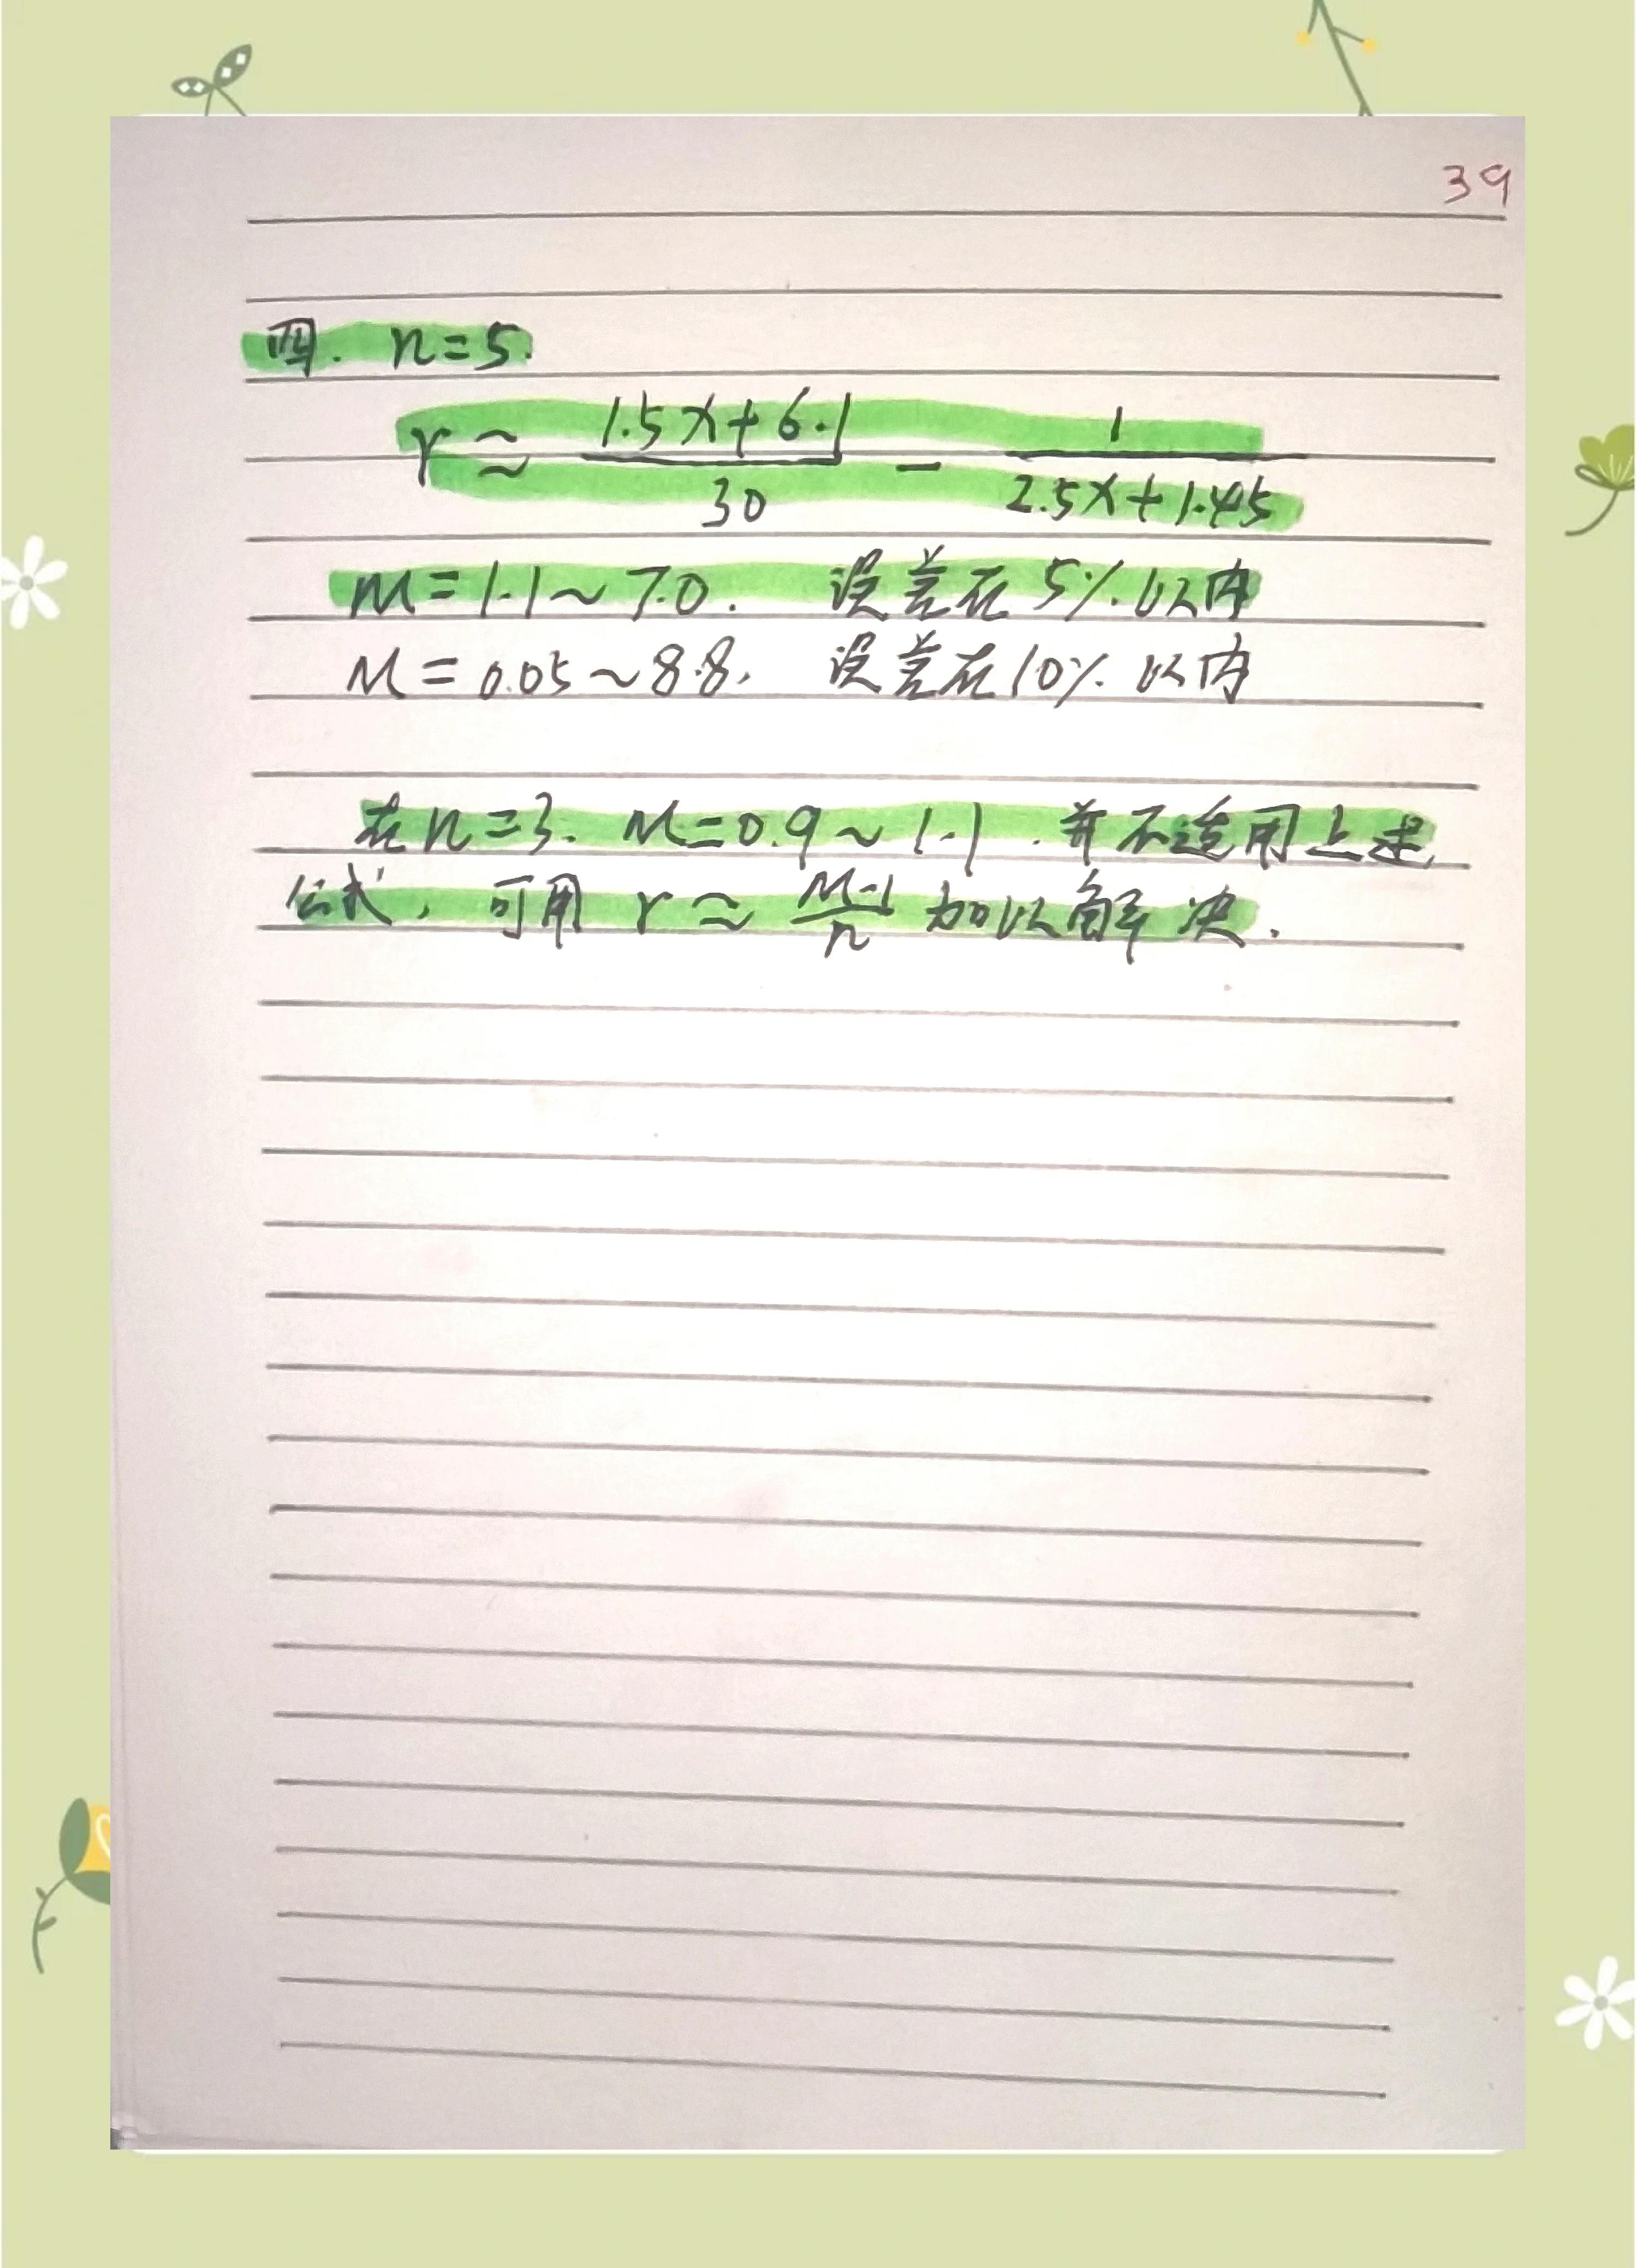 39
四. n=5.
r ≈ (1.5x+6.1)/30 - 1/(2.5x+1.45)
M=1.1~7.0. 误差在5%以内
M=0.05~8.8, 误差在10%以内
在n=3. M=0.9~1.1.并不适用上述
公式, 可用 r ≈ (M-1)/n 加以解决.